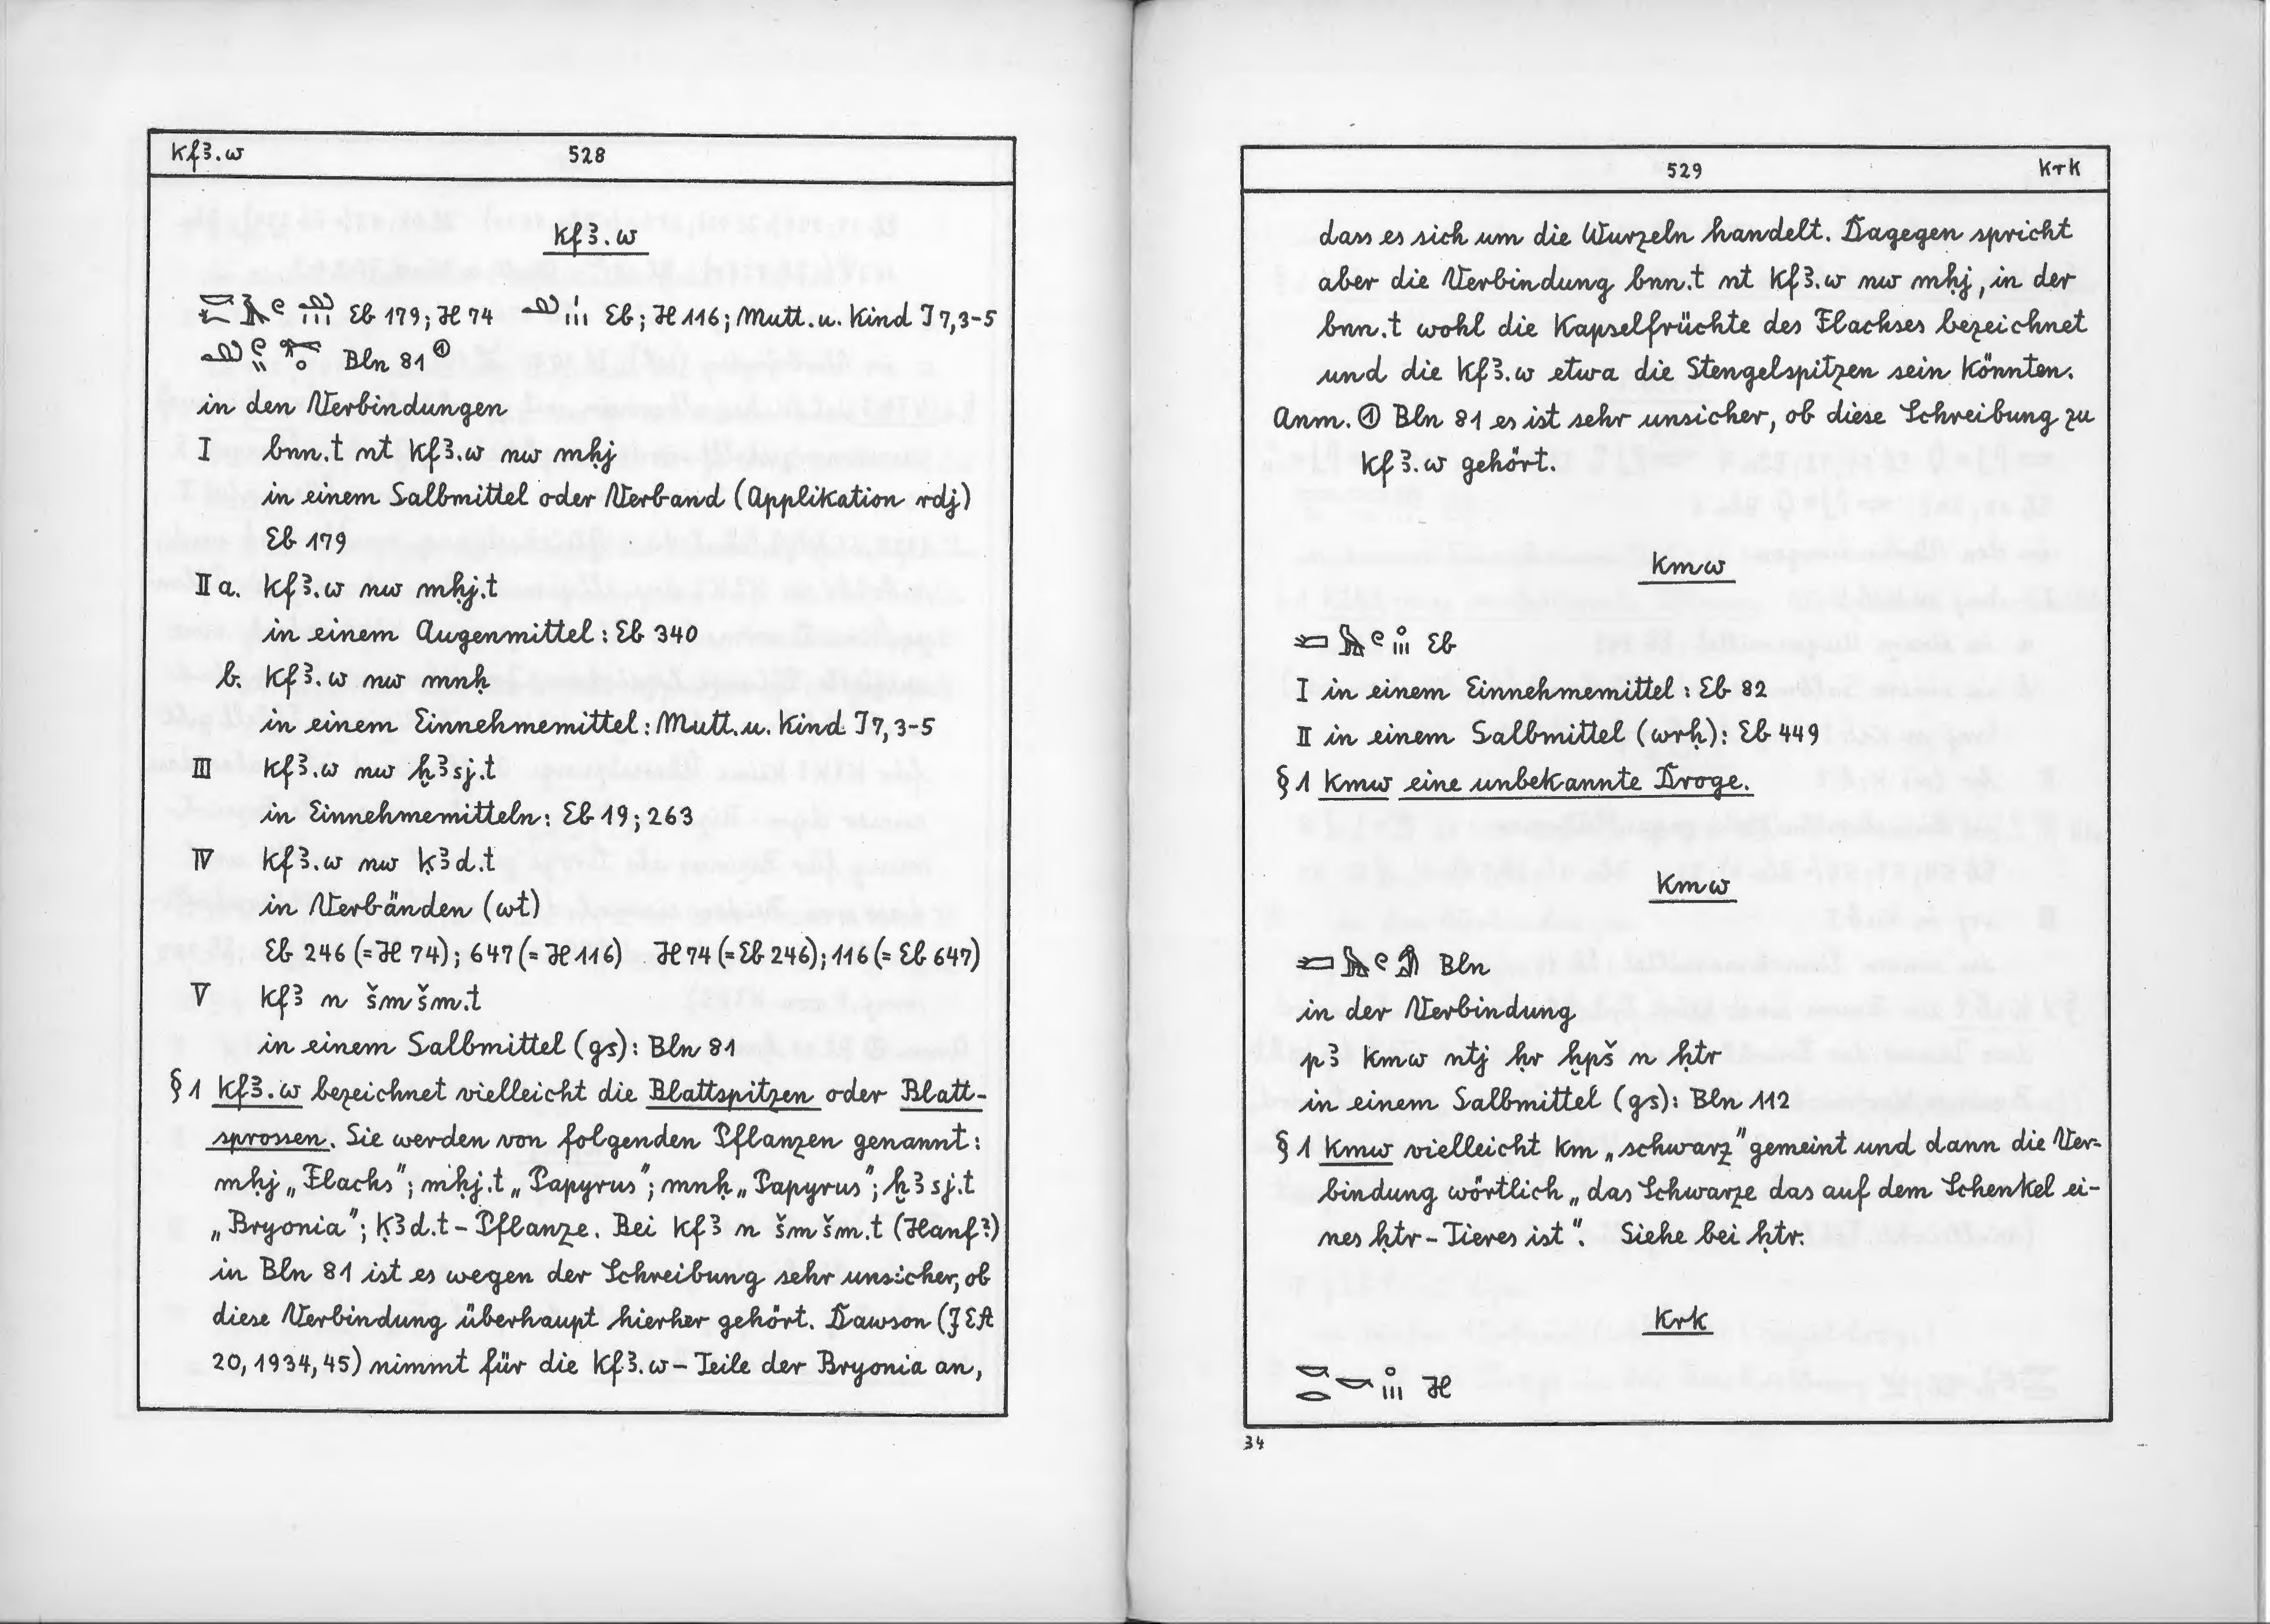 kfꜣ.w 528
kfꜣ.w
Eb 179; H 74 Eb; H 116; Mutt. u. Kind I 7,3-5
Bln 81 ①
in den Verbindungen
I bnn.t nt kfꜣ.w nw mḥj
in einem Salbmittel oder Verband (Applikation rdj)
Eb 179
II a. kfꜣ.w nw mḥj.t
in einem Augenmittel: Eb 340
b. kfꜣ.w nw mnḥ
in einem Einnehmemittel: Mutt. u. Kind I 7,3-5
III kfꜣ.w nw ḫꜣsj.t
in Einnehmemitteln: Eb 19; 263
IV kfꜣ.w nw ḳꜣd.t
in Verbänden (wt)
Eb 246 (= H 74); 647 (= H 116) H 74 (= Eb 246); 116 (= Eb 647)
V kfꜣ n šmšm.t
in einem Salbmittel (gs): Bln 81
§ 1 kfꜣ.w bezeichnet vielleicht die Blattspitzen oder Blatt-
sprossen. Sie werden von folgenden Pflanzen genannt:
mḥj „Flachs"; mḥj.t „Papyrus"; mnḥ „Papyrus"; ḫꜣsj.t
„Bryonia"; ḳꜣd.t - Pflanze. Bei kfꜣ n šmšm.t (Hanf?)
in Bln 81 ist es wegen der Schreibung sehr unsicher, ob
diese Verbindung überhaupt hierher gehört. Dawson (JEA
20, 1934, 45) nimmt für die kfꜣ.w - Teile der Bryonia an,
529 krk
dass es sich um die Wurzeln handelt. Dagegen spricht
aber die Verbindung bnn.t nt kfꜣ.w nw mḥj, in der
bnn.t wohl die Kapselfrüchte des Flachses bezeichnet
und die kfꜣ.w etwa die Stengelspitzen sein könnten.
Anm. ① Bln 81 es ist sehr unsicher, ob diese Schreibung zu
kfꜣ.w gehört.
kmw
Eb
I in einem Einnehmemittel: Eb 82
II in einem Salbmittel (wrḥ): Eb 449
§ 1 kmw eine unbekannte Droge.
kmw
Bln
in der Verbindung
pꜣ kmw ntj ḥr ḫpš n ḥtr
in einem Salbmittel (gs): Bln 112
§ 1 kmw vielleicht km „schwarz" gemeint und dann die Ver-
bindung wörtlich „das Schwarze das auf dem Schenkel ei-
nes ḥtr - Tieres ist". Siehe bei ḥtr.
krk
H
34